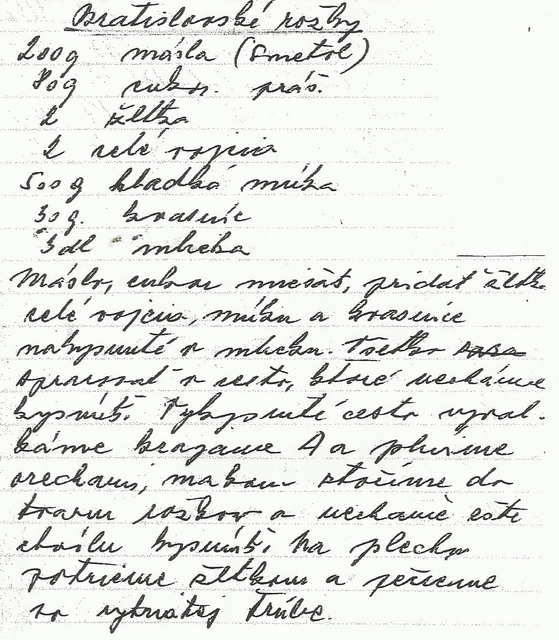 Bratislovské rožky
200g másla (Smetol)
80g cukor. práš.
2 žĺtka
2 celé vajcia
500g hladká múka
30g. kvasnic
3dl mlieka
Máslo, cukor miešať, pridať žĺtk.
celé vajcia, múku a kvasnice
nakysnuté v mlieku. Všetko
spracovať v cesto, ktoré necháme
kysnúť. Vykysnuté cesto vyval-
káme krájame a plníme
orechami, makom stočíme do
tvaru rožkov a necháme ešte
chvílu kysnúť. Na plechu
potrieme žĺtkom a pečieme
vo vyhriatej trúbe.